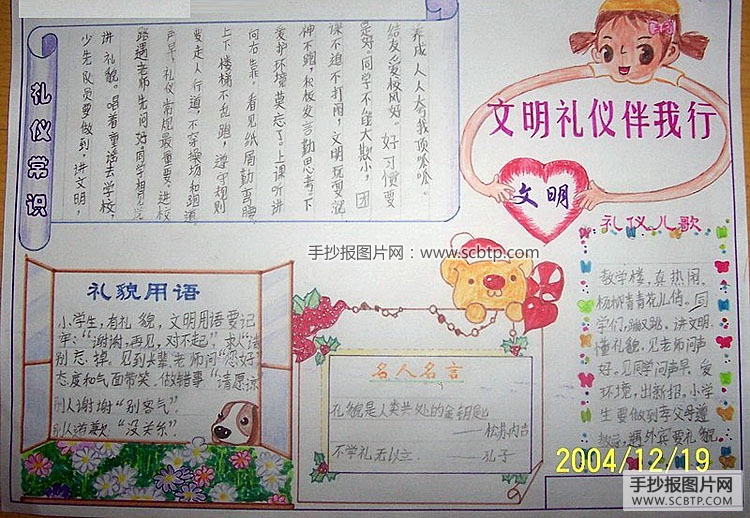 文明礼仪伴我行
文明
礼仪常识
少先队员要做到，讲文明，
讲礼貌。唱着童谣去学校，
路遇老师先问好。同学相见
声早。礼仪常规最重要。进校
发走人行道，不穿操场和跑道
上下楼梯不乱跑，遵守规则
向右靠。看见纸屑勤弯腰
爱护环境莫忘了。上课听讲
神不跑，积极发言勤思考。下
课不追不打闹，文明玩耍
是好。同学不能大欺小，团
结友爱校风好。好习惯要
养成，人人夸我顶呱呱。
手抄报图片网：www.scbtp.com
礼貌用语
小学生，有礼貌，文明用语要记
牢：“谢谢，再见，对不起”求人“请”
别忘掉。见到长辈、老师问“您好”
态度和气面带笑。做错事“请原谅”
别人谢谢“别客气”
别人道歉“没关系”
名人名言
礼貌是人类共处的金钥匙
——松苏内吉
不学礼无以立——孔子
礼仪儿歌
教学楼，真热闹。
杨柳青青花儿俏。同
学们，蹦又跳。讲文明，
懂礼貌。见老师问声
好。见同学问声早。爱
环境，出新招。小学
生要做到孝父母遵
教导。遇外宾要礼貌
2004/12/19
手抄报图片网
WWW.SCBTP.COM